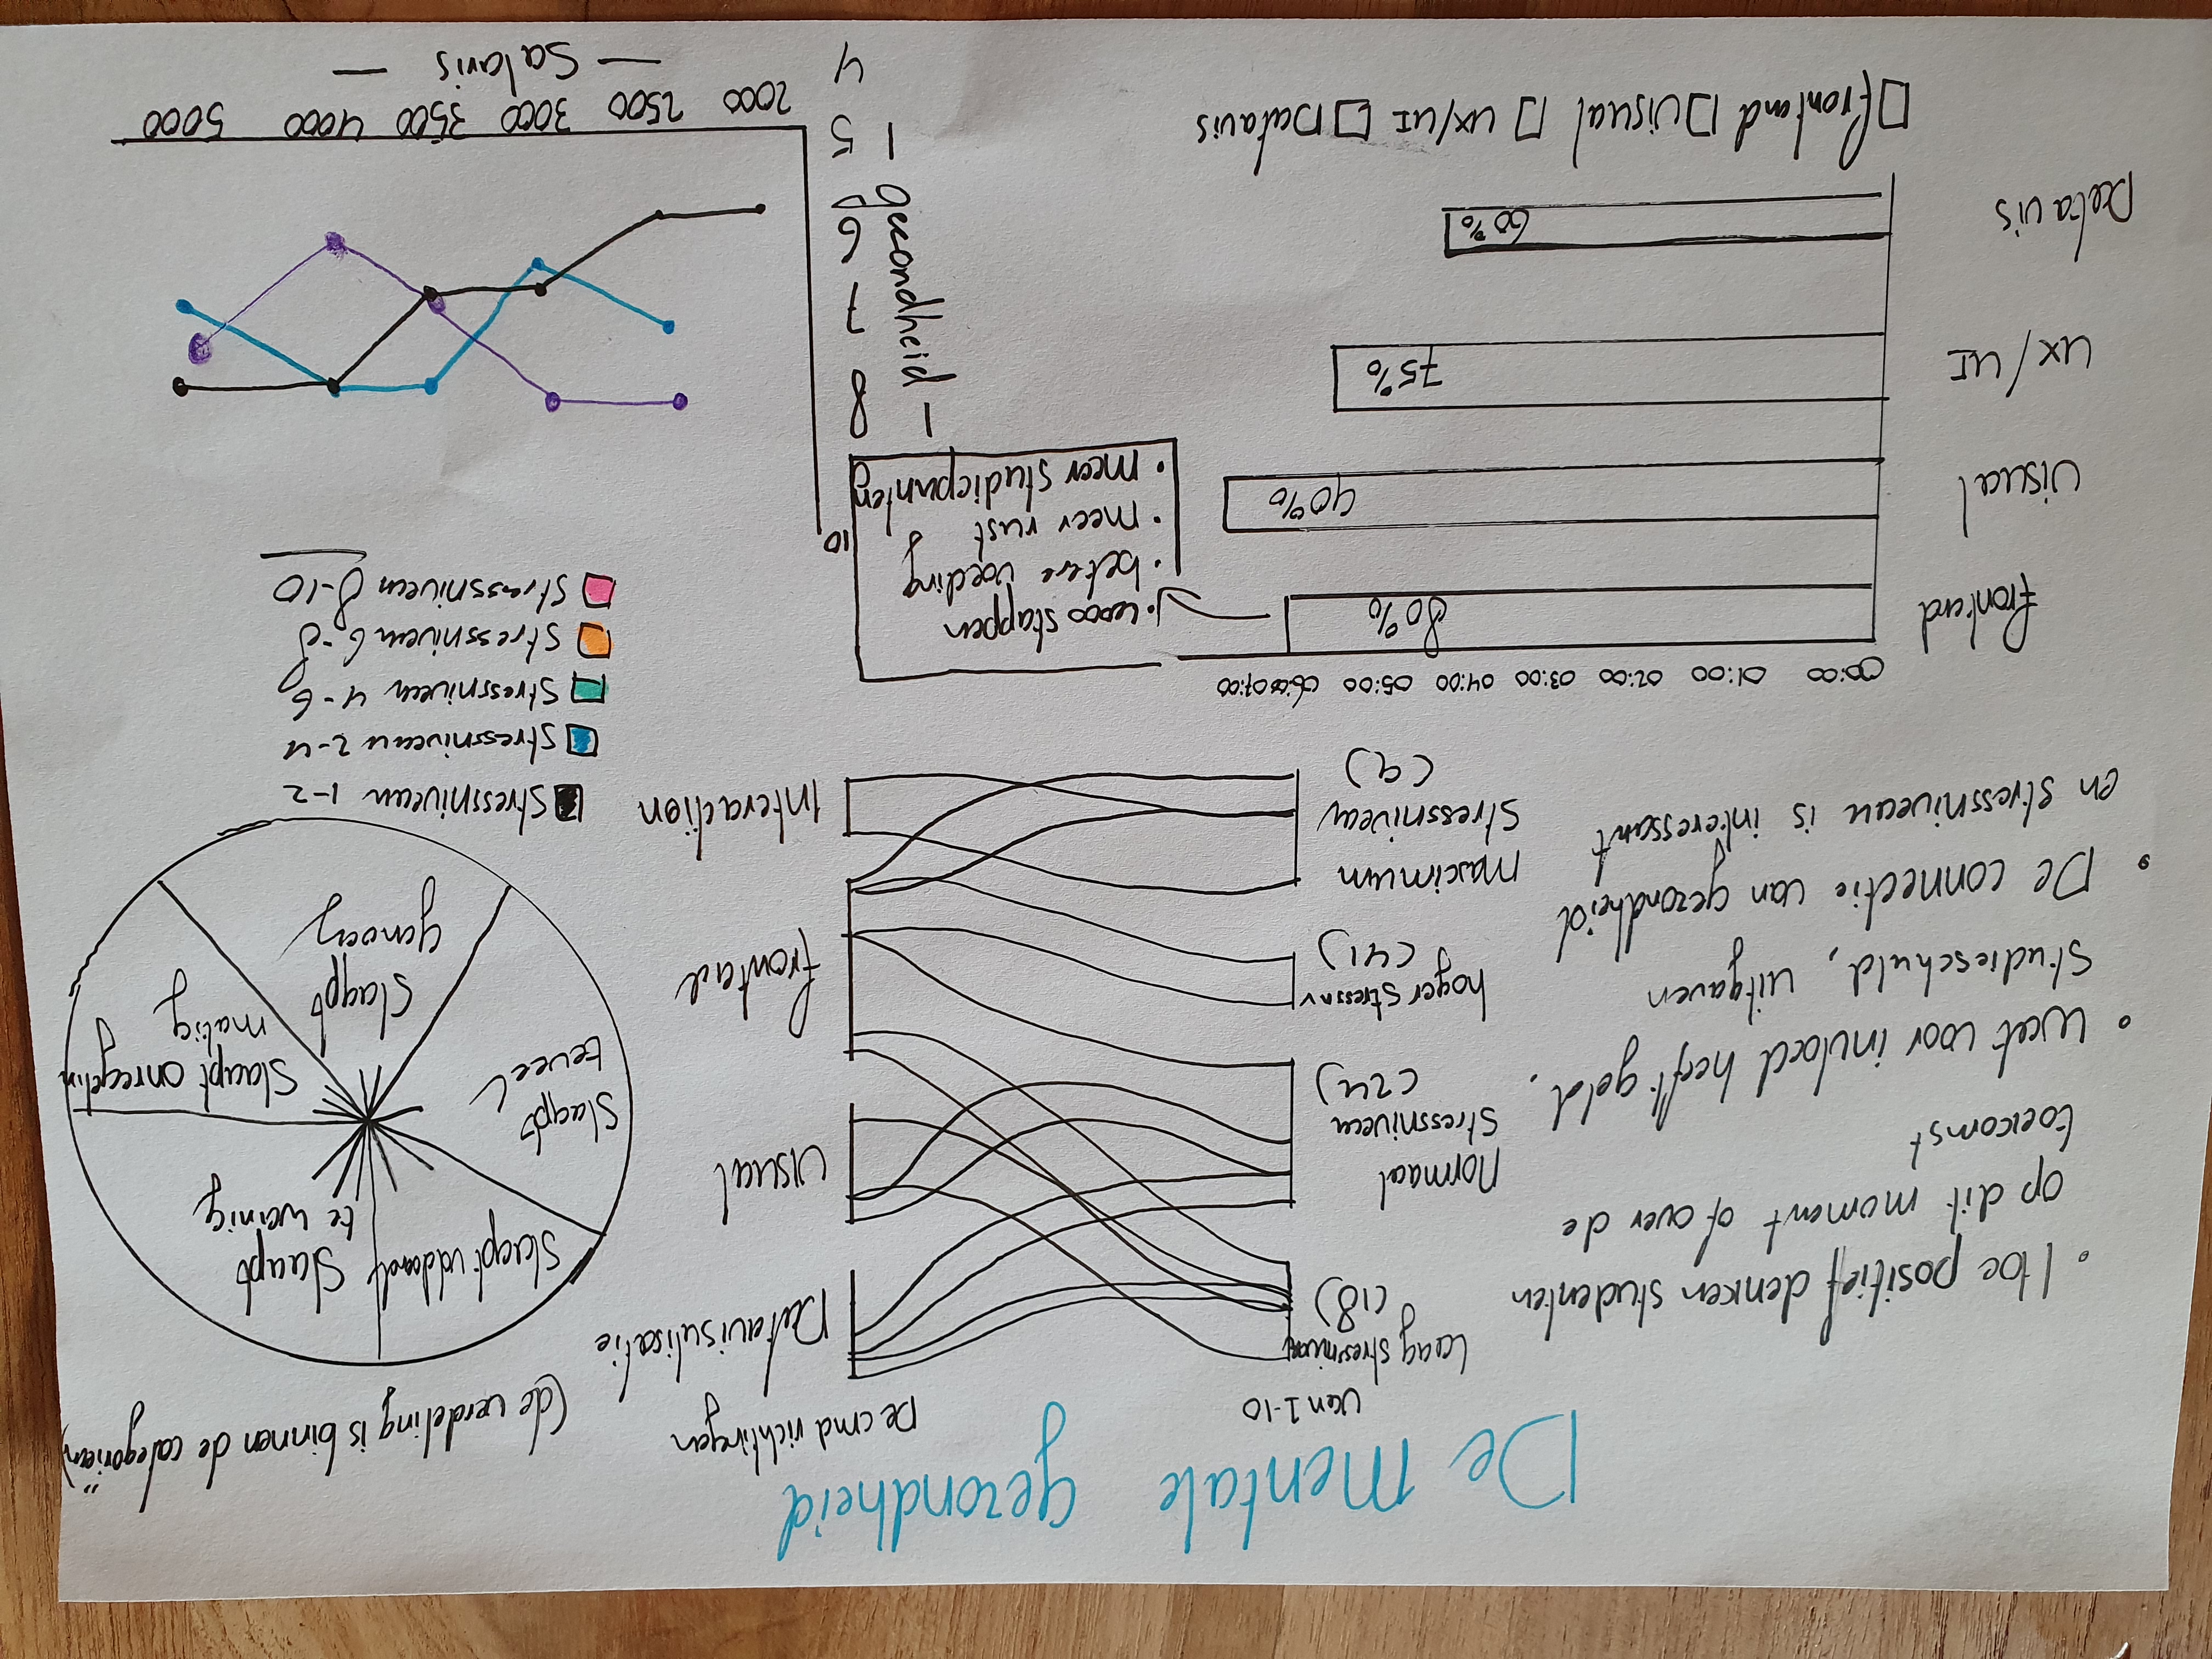 De mentale gezondheid
• Hoe positief denken studenten
op dit moment of over de
toekomst
• Wat voor invloed heeft geld,
studieschuld, uitgaven
• De connectie van gezondheid
en stressniveau is interessant
van 1-10
De cmd richtingen
Laag stressniveau
(18)
Normaal
stressniveau
(24)
hoger stressnv
(41)
maximum
stressniveau
(9)
Datavisulisatie
visual
frontend
Interaction
(de verdeling is binnen de categoriën)
Slaapt voldoende
Slaapt
te weinig
Slaapt
teveel
Slaapt onregelm
matig
Slaapt
genoeg
Stressniveau 1-2
Stressniveau 2-4
Stressniveau 4-6
Stressniveau 6-8
Stressniveau 8-10
00:00 01:00 02:00 03:00 04:00 05:00 06:00 07:00
frontend
80%
visual
90%
ux/UI
75%
Datavis
60%
• stappen
• betere voeding
• meer rust
• meer studiepunten
frontend visual ux/UI Datavis
gezondheid
10
8
7
6
5
4
2000 2500 3000 3500 4000 5000
— Salaris —